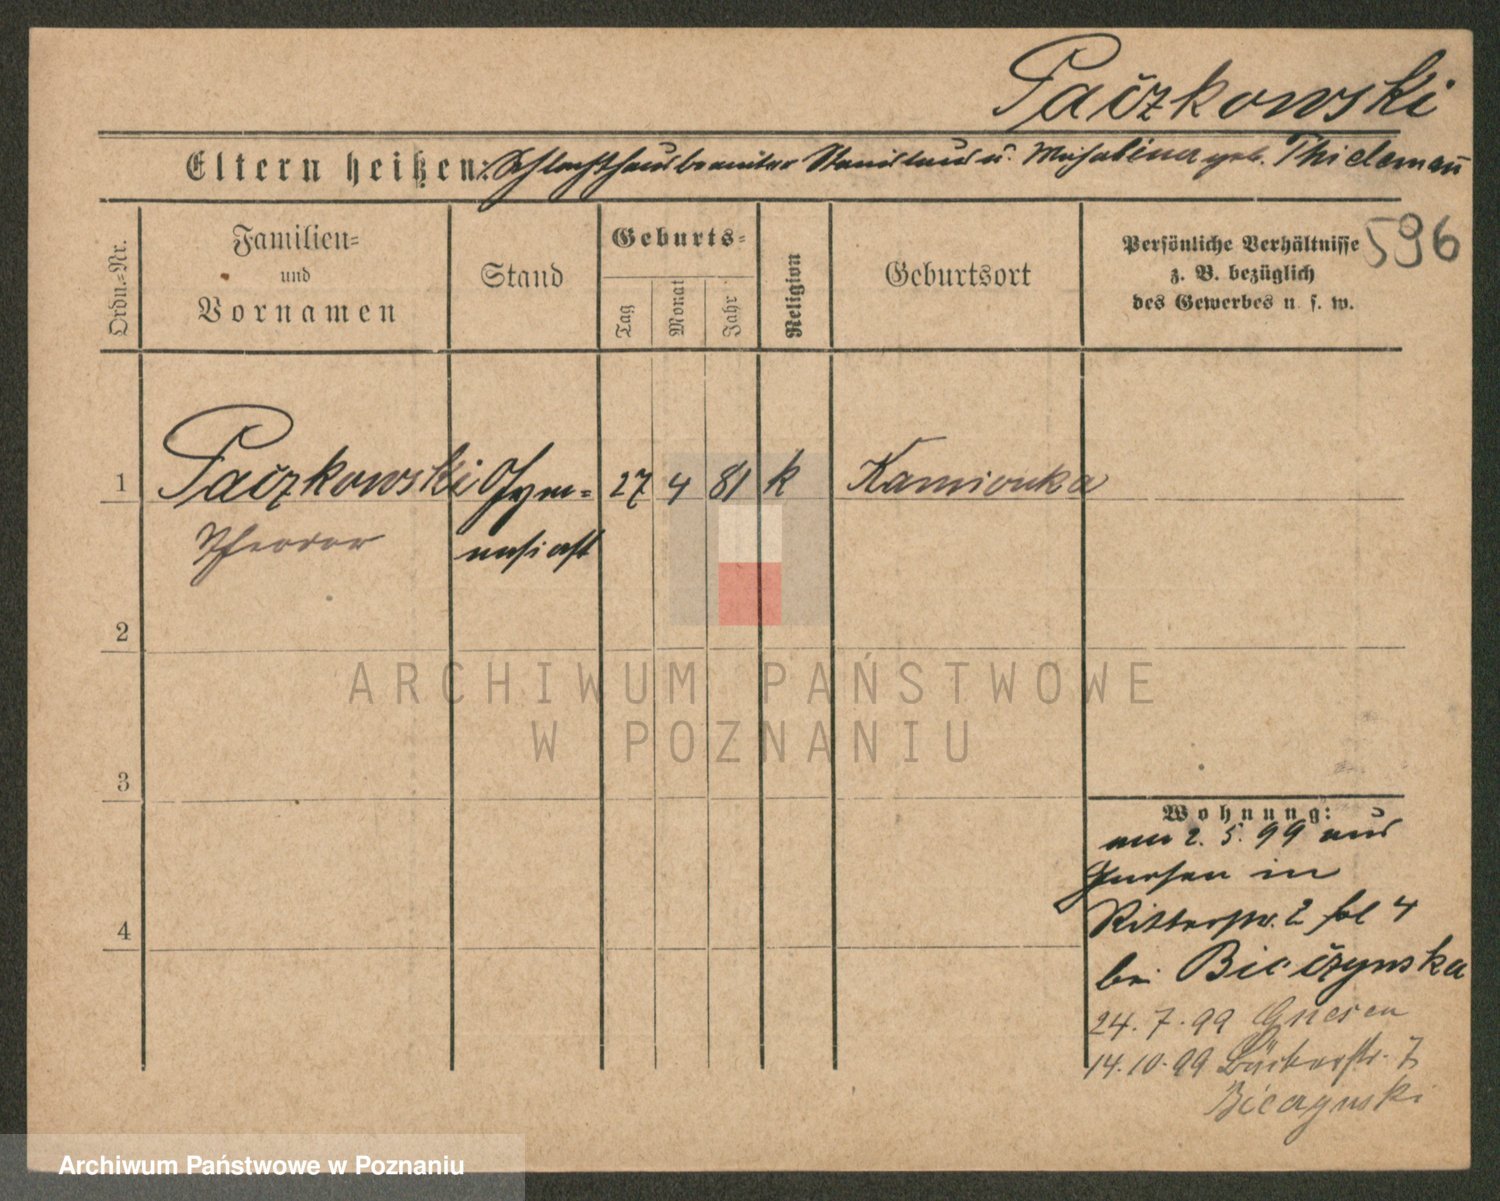 Paczkowski
Eltern heißen: Schlachthausbeamter Stanislaus u. Michalina geb. Thielemañ
596
Ordn.-Nr.
Familien-
und
Vornamen
Stand
Geburts-
Tag
Monat
Jahr
Religion
Geburtsort
Persönliche Verhältnisse
z. B. bezüglich
des Gewerbes u. s. w.
1 Paczkowski Gym- 27 4 81 k Kamionka
Theodor nasiast
2
ARCHIWUM PAŃSTWOWE
W POZNANIU
3
Wohnung:
am 2. 5. 99 aus
Gnesen in
Ritterstr. 2 bei
4
bei Biczynska
24. 7. 99 Gnesen
14. 10. 99 7
Biczynski
Archiwum Państwowe w Poznaniu